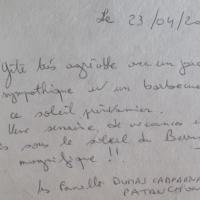 Le 23/04/20
Gîte très agréable avec un
sympathique et un barbecue
ce soleil printanier.
Une semaine de vacances
sous le soleil du
magnifique !!
La famille DUMAS